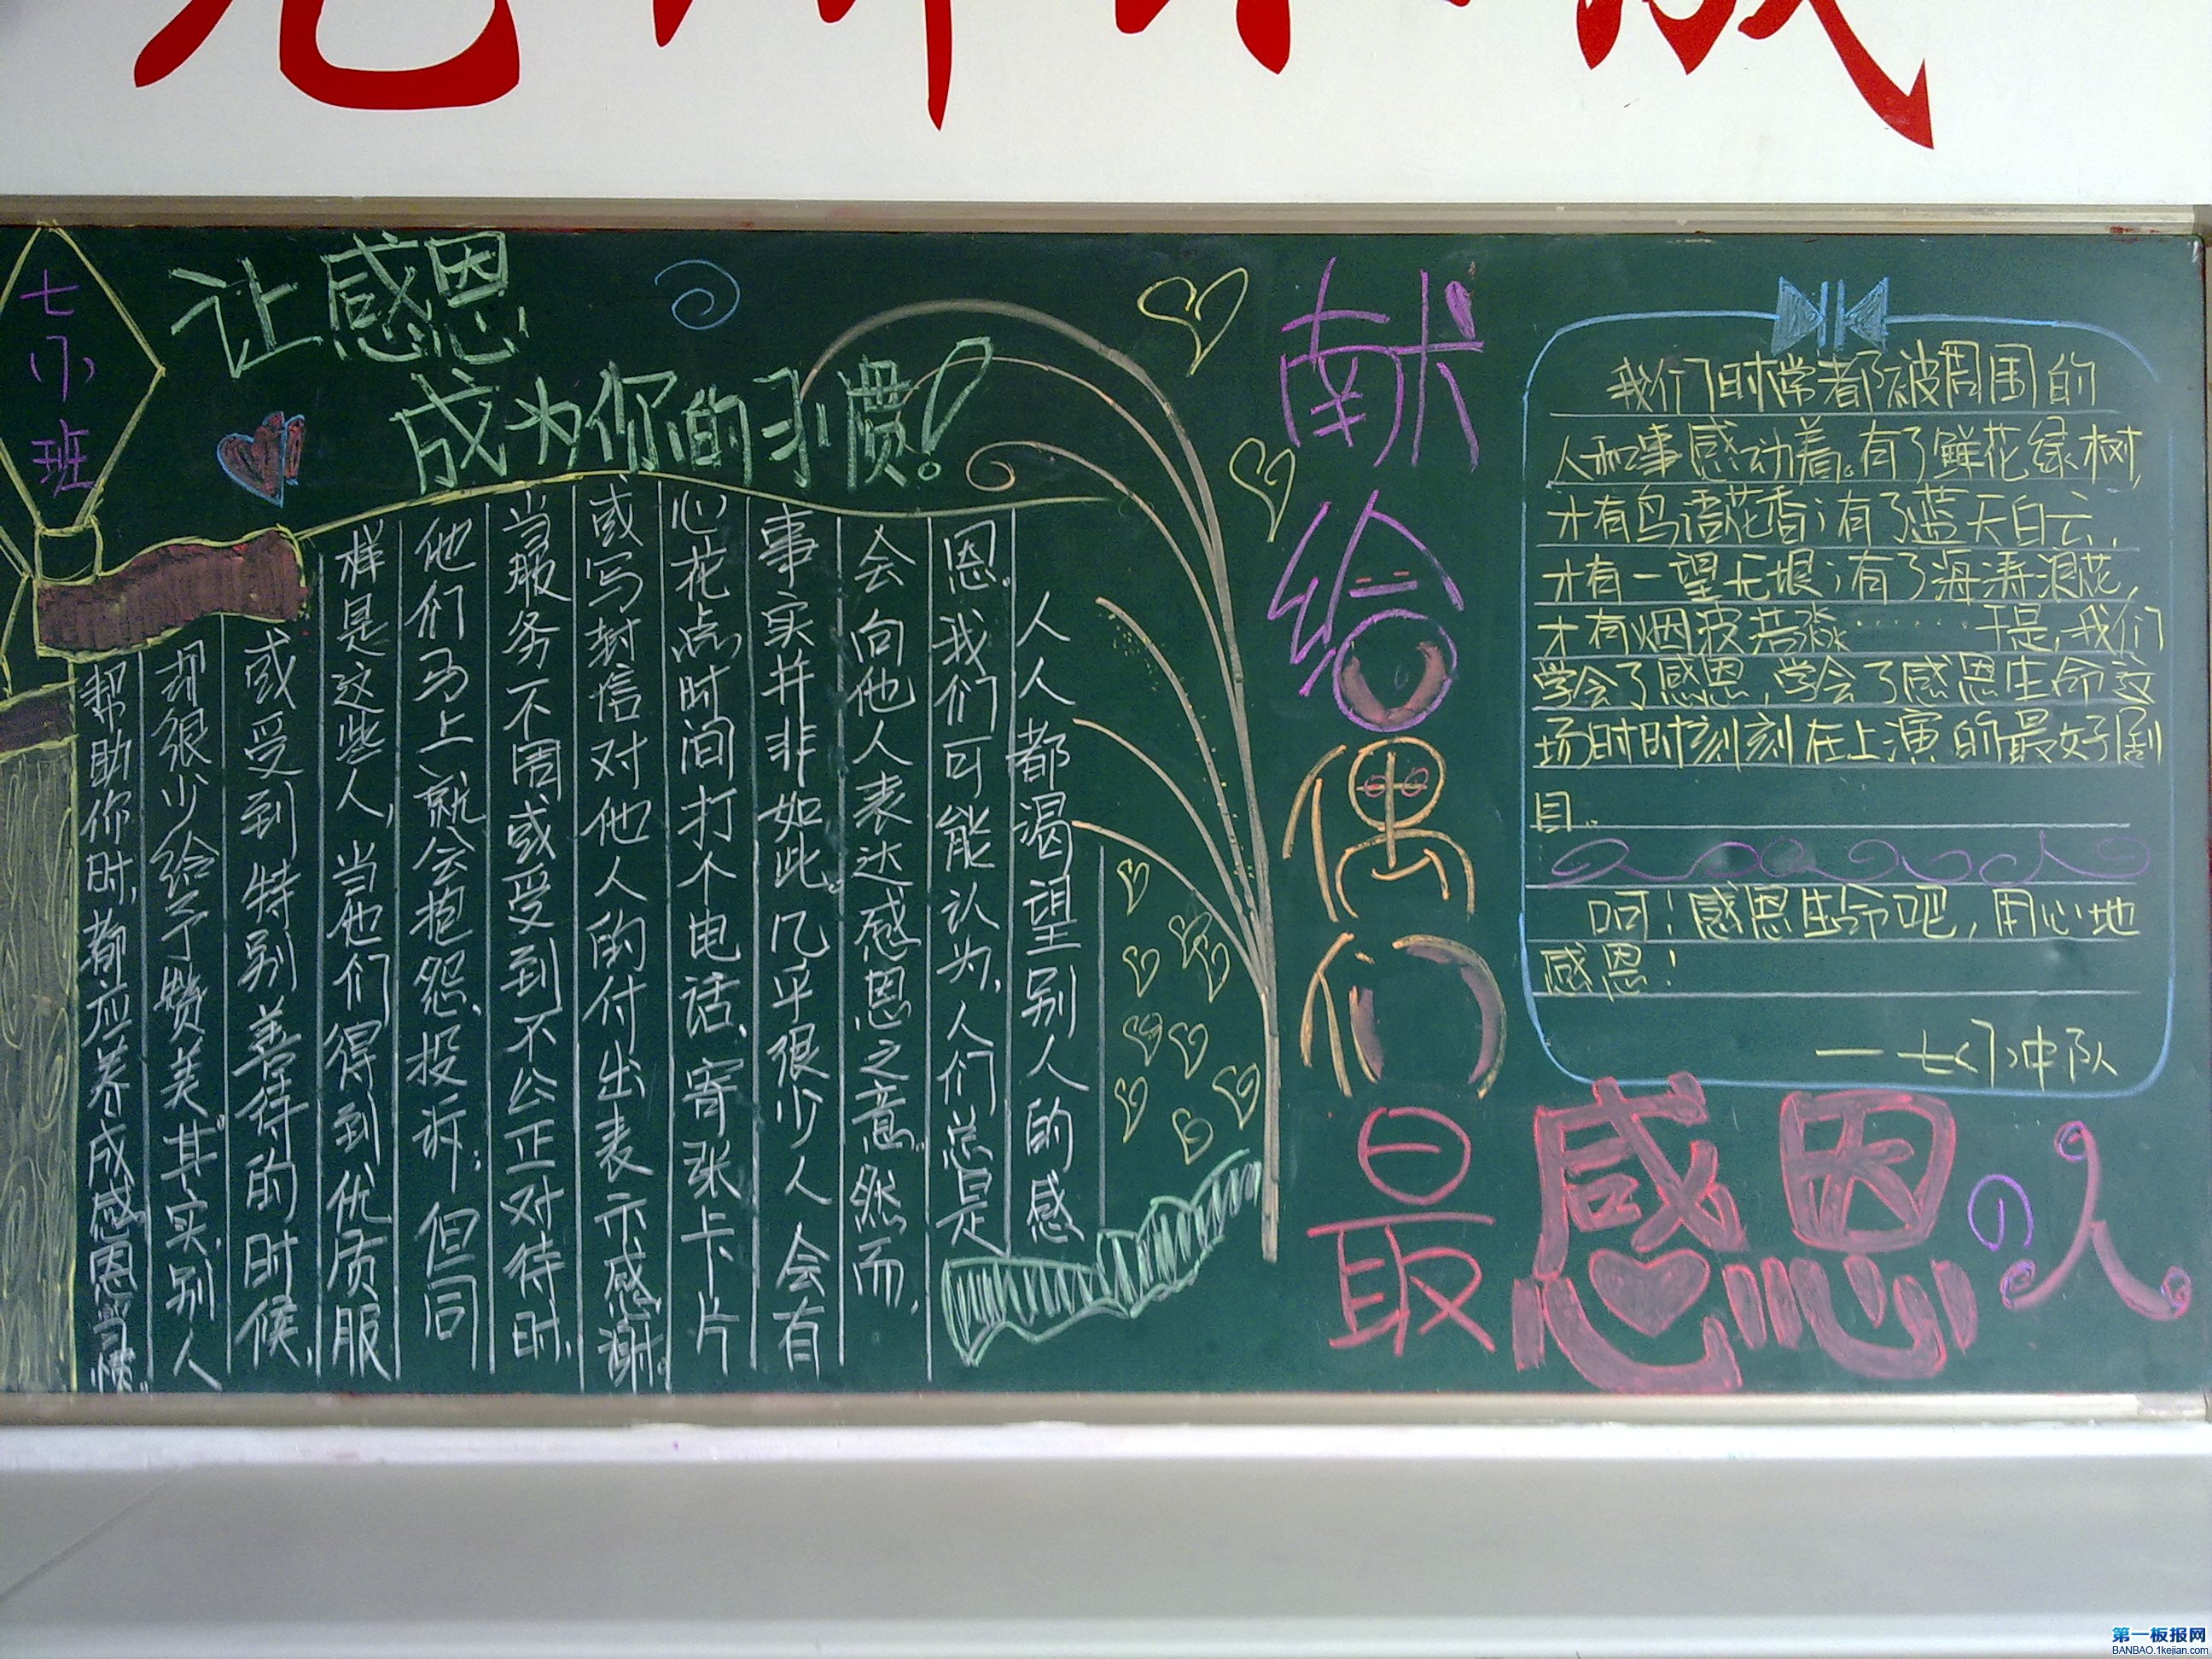 让感恩
成为你的习惯！
人人都渴望别人的感
恩。我们可能认为,人们总是
会向他人表达感恩之意。然而,
事实并非如此。几乎很少人会有
心花点时间打个电话、寄张卡片
或写封信对他人的付出表示感谢。
当服务不周或受到不公正对待时,
他们马上就会抱怨、投诉；但同
样是这些人,当他们得到优质服
或受到特别善待的时候,
却很少给予赞美。其实,别人
帮助你时,都应养成感恩习惯。
献给偶们最感恩的人
我们时常都被周围的
人和事感动着。有了鲜花绿树,
才有鸟语花香；有了蓝天白云,
才有一望无垠；有了海涛浪花,
才有烟波浩淼………于是,我们
学会了感恩,学会了感恩生命这
场时时刻刻在上演的最好剧
目。
呵！感恩生命吧,用心地
感恩！
第一板报网
BANBAO.1kejian.com